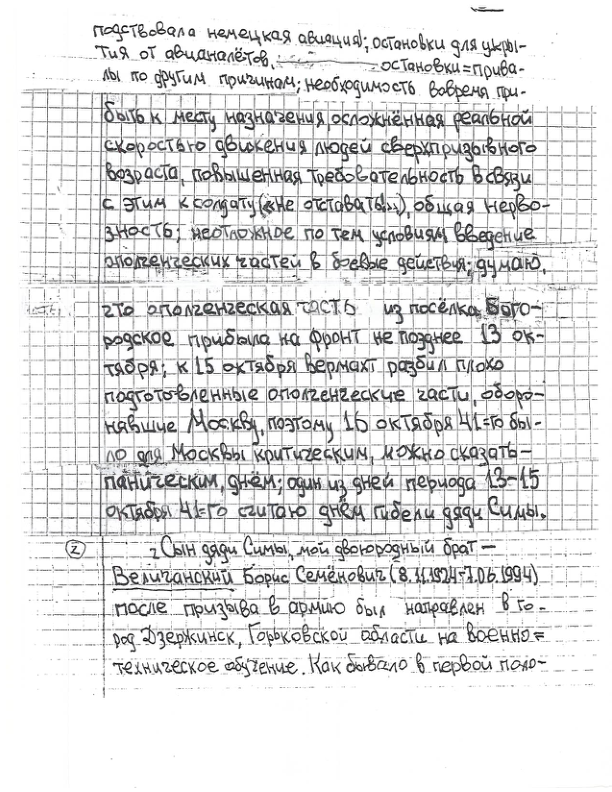 подствовала немецкая авиация); остановки для укры-
тия от авианалётов, остановки=прива-
лы по другим причинам; необходимость вовремя при-
быть к месту назначения, осложнённая реальной
скоростью движения людей сверхпризывного
возраста, повышенная требовательность в связи
с этим к солдату («не отставать!»), общая нерво-
зность; неотложное по тем условиям введение
ополченческих частей в боевые действия; думаю,
что ополченческая часть из посёлка Бого-
родское прибыла на фронт не позднее 13 ок-
тября; к 15 октября вермахт разбил плохо
подготовленные ополченческие части, оборо-
нявшие Москву, поэтому 16 октября 41=го бы-
ло для Москвы критическим, можно сказать-
паническим, днём; один из дней периода 13-15
октября 41=го считаю днём гибели дяди Симы.
2 Сын дяди Симы, мой двоюродный брат-
Величанский Борис Семёнович (8.11.1924-7.06.1994)
после призыва в армию был направлен в го-
род Дзержинск, Горьковской области на военно=
техническое обучение. Как бывало в первой поло-